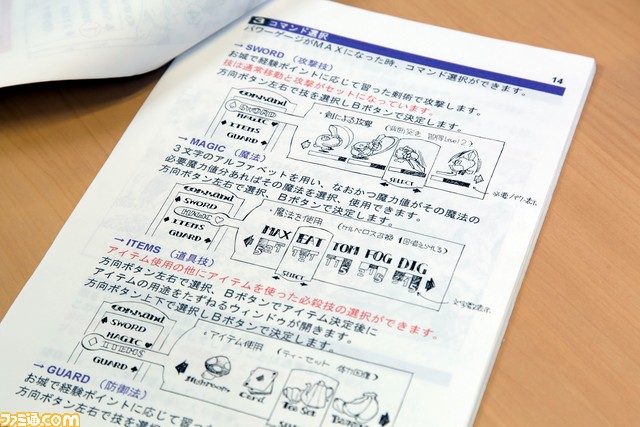 3 コマンド選択
パワーゲージがMAXになった時、コマンド選択ができます。
14
→ SWORD （攻撃技）
お城で経験ポイントに応じて習った剣術で攻撃します。
技は通常移動と攻撃がセットになっています。
方向ボタン左右で技を選択しBボタンで決定します。
command
SWORD
MAGIC
ITEMS
GUARD
・剣による攻撃
SELECT
→ MAGIC （魔法）
3文字のアルファベットを用い、なおかつ魔力値がその魔法の
必要魔力値分あればその魔法を選択、使用できます。
方向ボタン左右で選択、Bボタンで決定します。
command
SWORD
MAGIC
ITEMS
GUARD
・魔法を使用
MAX EAT TOM HOG DIG
SELECT
→ ITEMS （道具技）
アイテム使用の他にアイテムを使った必殺技の選択ができます。
方向ボタン左右で選択、Bボタンでアイテム決定後に
アイテムの用途をたずねるウィンドウが開きます。
方向ボタン上下で選択しBボタンで決定します。
command
SWORD
MAGIC
ITEMS
GUARD
・アイテム使用
（ティーセット
Mushroom
Card
Tea Set
→ GUARD （防御法）
お城で経験ポイントに応じて習った
方向ボタン左右で技を選
ファミ通.com